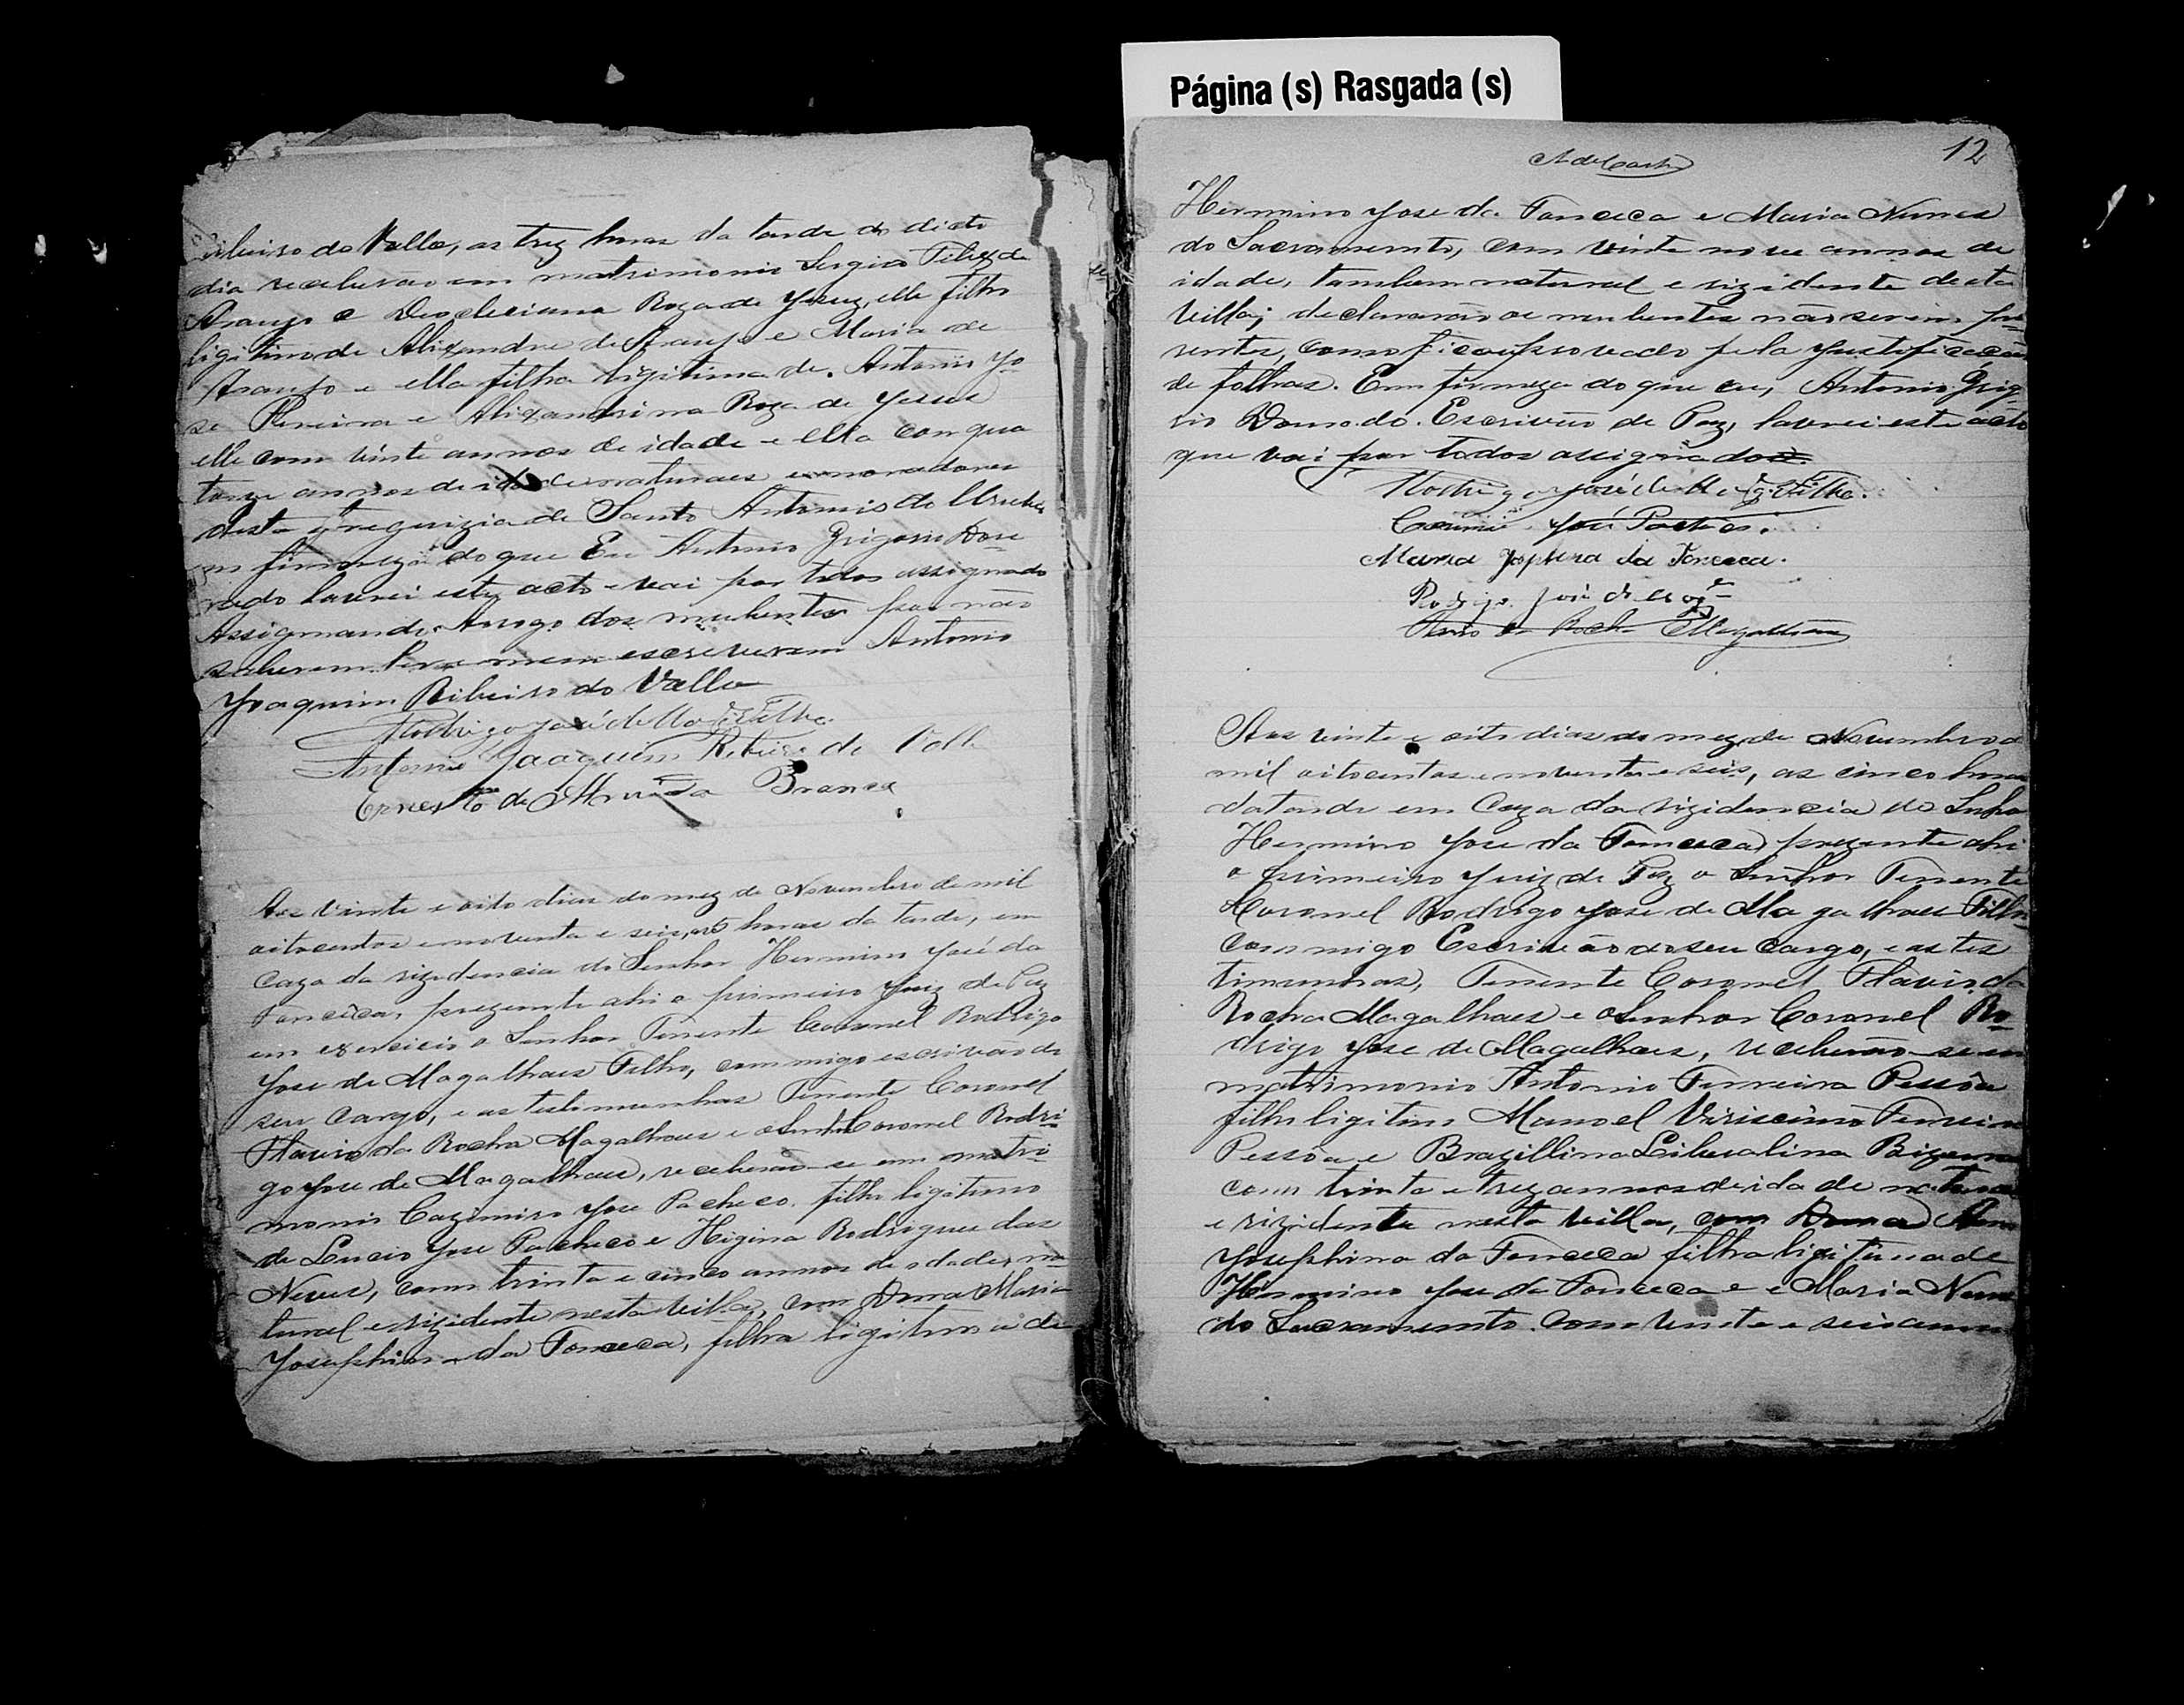 Ribeiro do Valle, as trez horas da tarde do dicto
dia receberão em matrimonio Sergio Felix de
Araujo e Deocleciana Roza de Jesuz, elle filho
ligitimo de Alixandre de Araujo e Maria de
Araujo e ella filha ligitima de Antonio Jo-
se Pereira e Alixandrina Roza de Jesus
elle com vinte annos de idade e ella com qua
torze annos de idade naturaes e moradores
desta freguizia de Santo Antonio do Urubu
em firmeza do que Eu Antonio Grigorio Dou
rado lavrei este acto e vai por todos assignado
Assignando Arogo dos nubentes por não
saberem ler e nem escreverem Antonio
Joaquim Ribeiro do Valle
Rodrigo José de Mag.es Filho
Antonio Joaquim Ribeiro do Valle
Ernesto de Branca
Aos vinte e oito dias do mez de Novembro de mil
oitocentos e noventa e seis, as horas da tarde, em
caza da rizidencia do Senhor Hermino José da
Fonceca, prezente ahi o primeiro Juiz de Paz
em exercicio o Senhor Tenente Coronel Rodrigo
Jose de Magalhaes Filho, commigo escrivão do
seu cargo, e as testimunhas Tenente Coronel
Flavio da Rocha Magalhaes e o Senhor Coronel Rodri-
go Jose de Magalhaes, receberão-se em matri-
monio Cazimiro Jose Pacheco filho ligitimo
de Lucio Jose Pacheco e Higina Rodrigues das
Neves, com trinta e cinco annos de idade, na-
tural e rizidente nesta villa, com Dona Maria
Josephina da Fonceca, filha ligitima de
Página (s) Rasgada (s)
12
Hermino Jose da Fonceca e Maria Nunes
do Sacramento, com vinte nove annos de
idade, tambem natural e rizidente desta
villa; declararão os nubentes não serem pa-
rentes, como fica provado pela Justificacão
de folhas. Em firmeza do que eu, Antonio Grigo-
rio Dourado Escrivão de Paz, lavrei este acto
que vai por todos assignados.
Rodrigo José de Mag.es Filho.
José Pacheco.
Maria Josphina da Fonceca.
Rodrigo José de Mag.es
Flavio da Rocha Magalhães
Aos vinte e oito dias do mez de Novembro de
mil oitocentos e noventa e seis, as cinco horas
da tarde em Caza da rizidencia do Senhor
Hermino Jose da Fonceca prezente ahi
o primeiro Juiz de Paz o Senhor Tenente
Coronel Rodrigo Jose de Magalhaes Filho
commigo Escrivão do seu cargo, e as tes
timunhas, Tenente Coronel Flavio da
Rocha Magalhaes e o Senhor Coronel Ro-
drigo Jose de Magalhaes, receberão-se em
matrimonio Antonio Ferreira Pessôa
filho ligitimo Manoel Ferreira
Pessôa e Brazillina Liberalina
com trinta e trez annos de idade natural
e rizidente nesta villa, com Dona Anna
Josephina da Fonceca filha ligitima de
Hermino Jose da Fonceca e e Maria Nunes
do Sacramento. Com vinte e seis annos